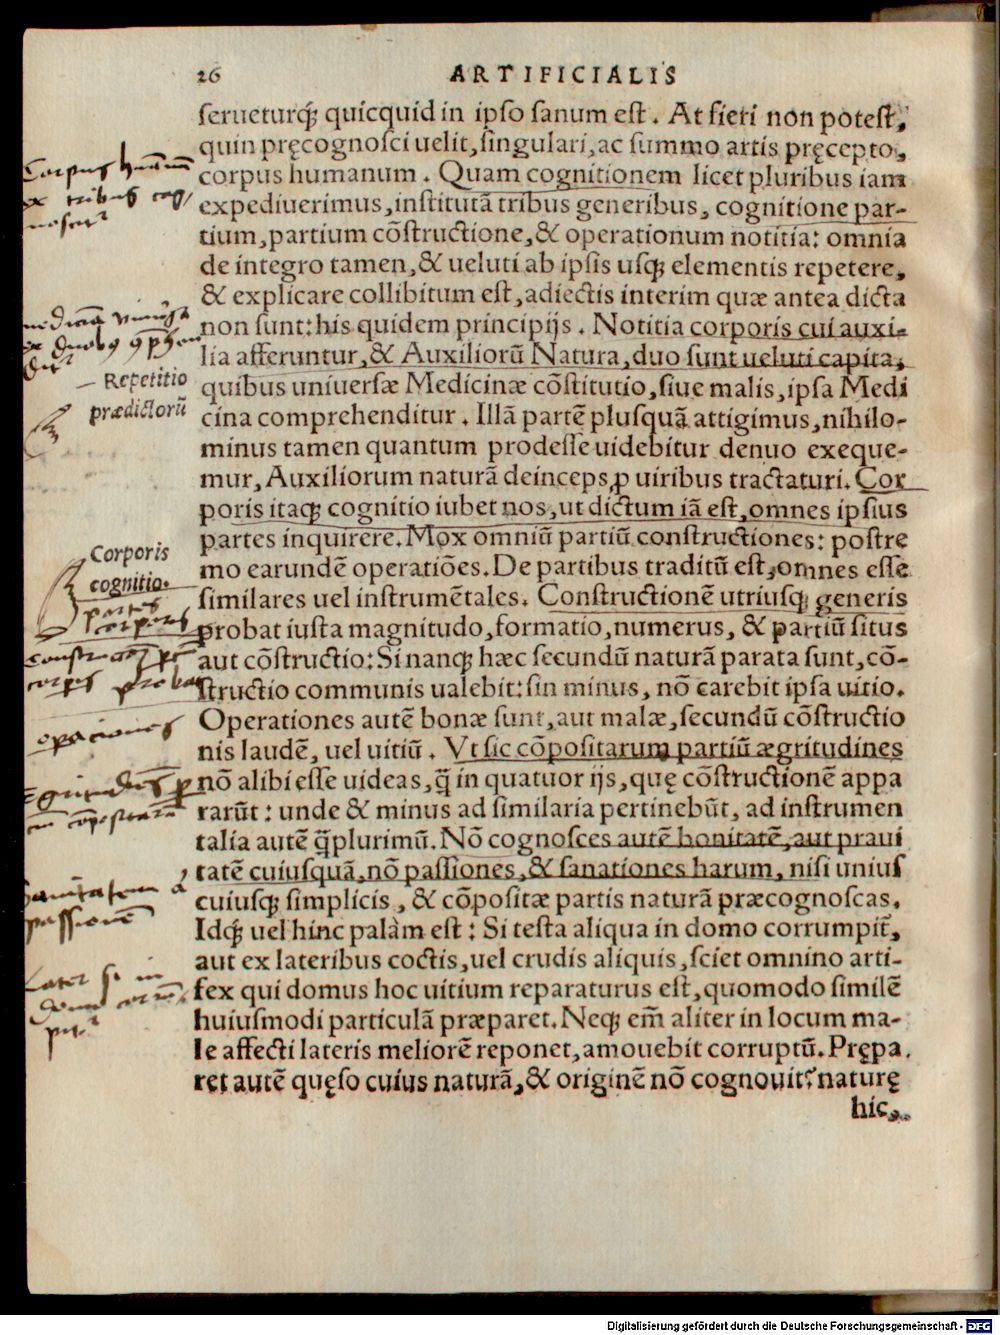 26 ARTIFICIALIS
serueturq́ꝫ quicquid in ipso sanum est. At fieri non potest,
quin pręcognosci uelit, singulari, ac summo artis pręcepto,
corpus humanum. Quam cognitionem licet pluribus iam
expediuerimus, institutā tribus generibus, cognitione par-
tium, partium cōstructione, & operationum notitia: omnia
de integro tamen, & ueluti ab ipsis usqꝫ elementis repetere,
& explicare collibitum est, adiectis interim quæ antea dicta
non sunt: his quidem principijs. Notitia corporis cui auxi-
lia afferuntur, & Auxiliorū Natura, duo sunt ueluti capita,
Repetitio
prædictorū
quibus uniuersæ Medicinæ cōstitutio, siue malis, ipsa Medi
cina comprehenditur. Illā partē plusquā attigimus, nihilo-
minus tamen quantum prodesse uidebitur denuo exeque-
mur, Auxiliorum naturā deinceps ꝓ uiribus tractaturi. Cor
poris itaqꝫ cognitio iubet nos, ut dictum iā est, omnes ipsius
partes inquirere. Mox omniū partiū constructiones: postre
Corporis
cognitio.
partes
corporis
mo earundē operatiōes. De partibus traditū est, omnes esse
similares uel instrumētales. Constructionē utriusqꝫ generis
probat iusta magnitudo, formatio, numerus, & partiū situs
aut cōstructio: Si nanqꝫ hæc secundū naturā parata sunt, cō-
structio communis ualebit: sin minus, nō carebit ipsa uitio.
operationes
Operationes autē bonæ sunt, aut malæ, secundū cōstructio
nis laudē, uel uitiū. Vt sic cōpositarum partiū ægritudines
nō alibi esse uideas, q̄̃ in quatuor ijs, quę cōstructionē appa
rarūt: unde & minus ad similaria pertinebūt, ad instrumen
talia autē q̄̃plurimū. Nō cognosces autē bonitatē, aut praui
tatē cuiusquā, nō passiones, & sanationes harum, nisi unius
passionē
cuiusqꝫ simplicis, & cōpositæ partis naturā præcognoscas.
Idq́ꝫ uel hinc palàm est: Si testa aliqua in domo corrumpit᷑,
aut ex lateribus coctis, uel crudis aliquis, sciet omnino arti-
Later si in
fex qui domus hoc uitium reparaturus est, quomodo similē
huiusmodi particulā præparet. Neqꝫ em̄ aliter in locum ma-
le affecti lateris meliorē reponet, amouebit corruptū. Prępa,
ret autē quęso cuius naturā, & originē nō cognouit? naturę
hic,
Digitalisierung gefördert durch die Deutsche Forschungsgemeinschaft - DFG